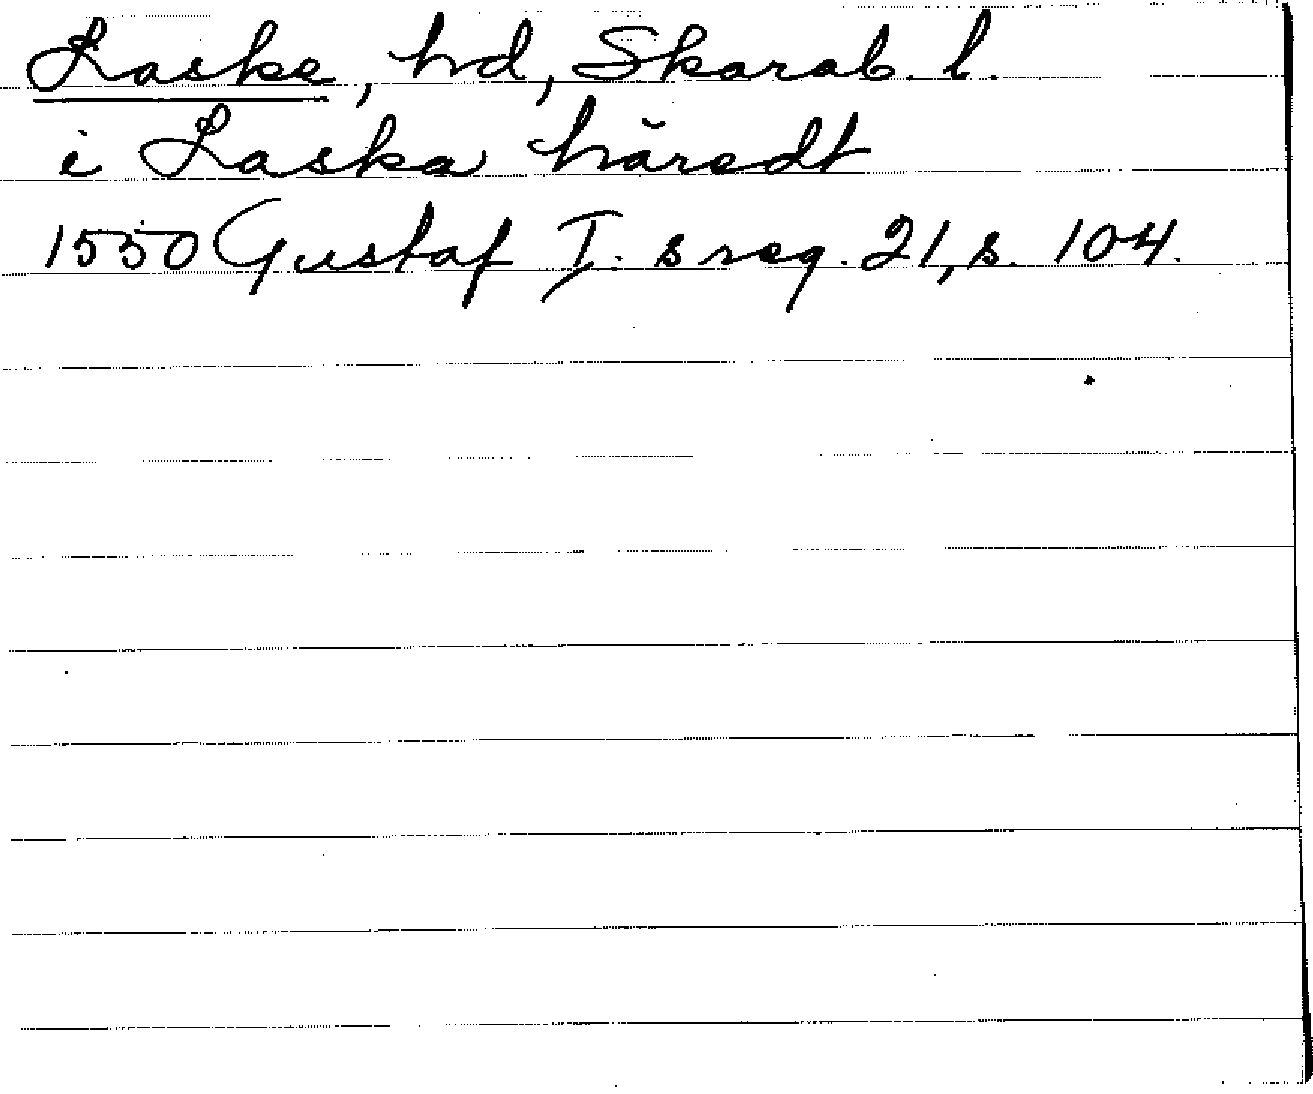 Laske, hd, Skarab. l.
i Laska häredt
1550 Gustaf I. s reg. 21, s. 104.